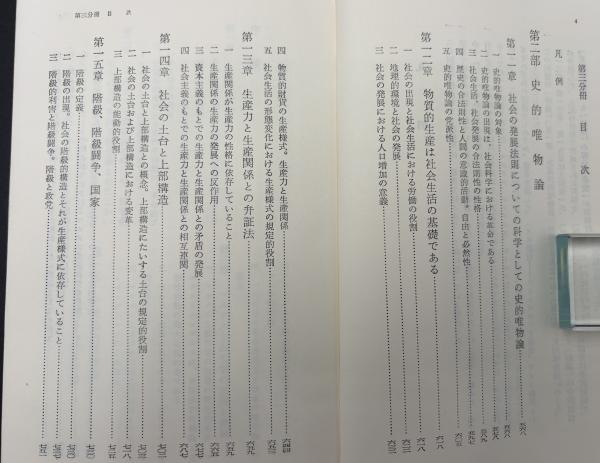 4
第三分冊 目次
凡例
第二部 史的唯物論
第一一章 社会の発展法則についての科学としての史的唯物論
一 史的唯物論の対象
二 史的唯物論の出現は、社会科学における革命である
三 社会生活、社会発展の合法則性の性格
四 歴史の合法則性と人間の意識的活動。自由と必然性
五 史的唯物論の党派性
第一二章 物質的生産は社会生活の基礎である
一 社会の出現と社会生活における労働の役割
二 地理的環境と社会の発展
三 社会の発展における人口増加の意義
第三分冊 目次
四 物質的財貨の生産様式。生産力と生産関係
五 社会生活の形態変化における生産様式の規定的役割
第一三章 生産力と生産関係との弁証法
一 生産関係が生産力の性格に依存していること
二 生産関係の生産力の発展への反作用
三 資本主義のもとでの生産力と生産関係との矛盾の発展
四 社会主義のもとでの生産力と生産関係との相互連関
第一四章 社会の土台と上部構造
一 社会の土台と上部構造との概念。上部構造にたいする土台の規定的役割
二 社会の土台および上部構造における変革
三 上部構造の能動的役割
第一五章 階級、階級闘争、国家
一 階級の定義
二 階級の出現。社会の階級的構造とそれが生産様式に依存していること
三 階級的利害と階級闘争。階級と政党